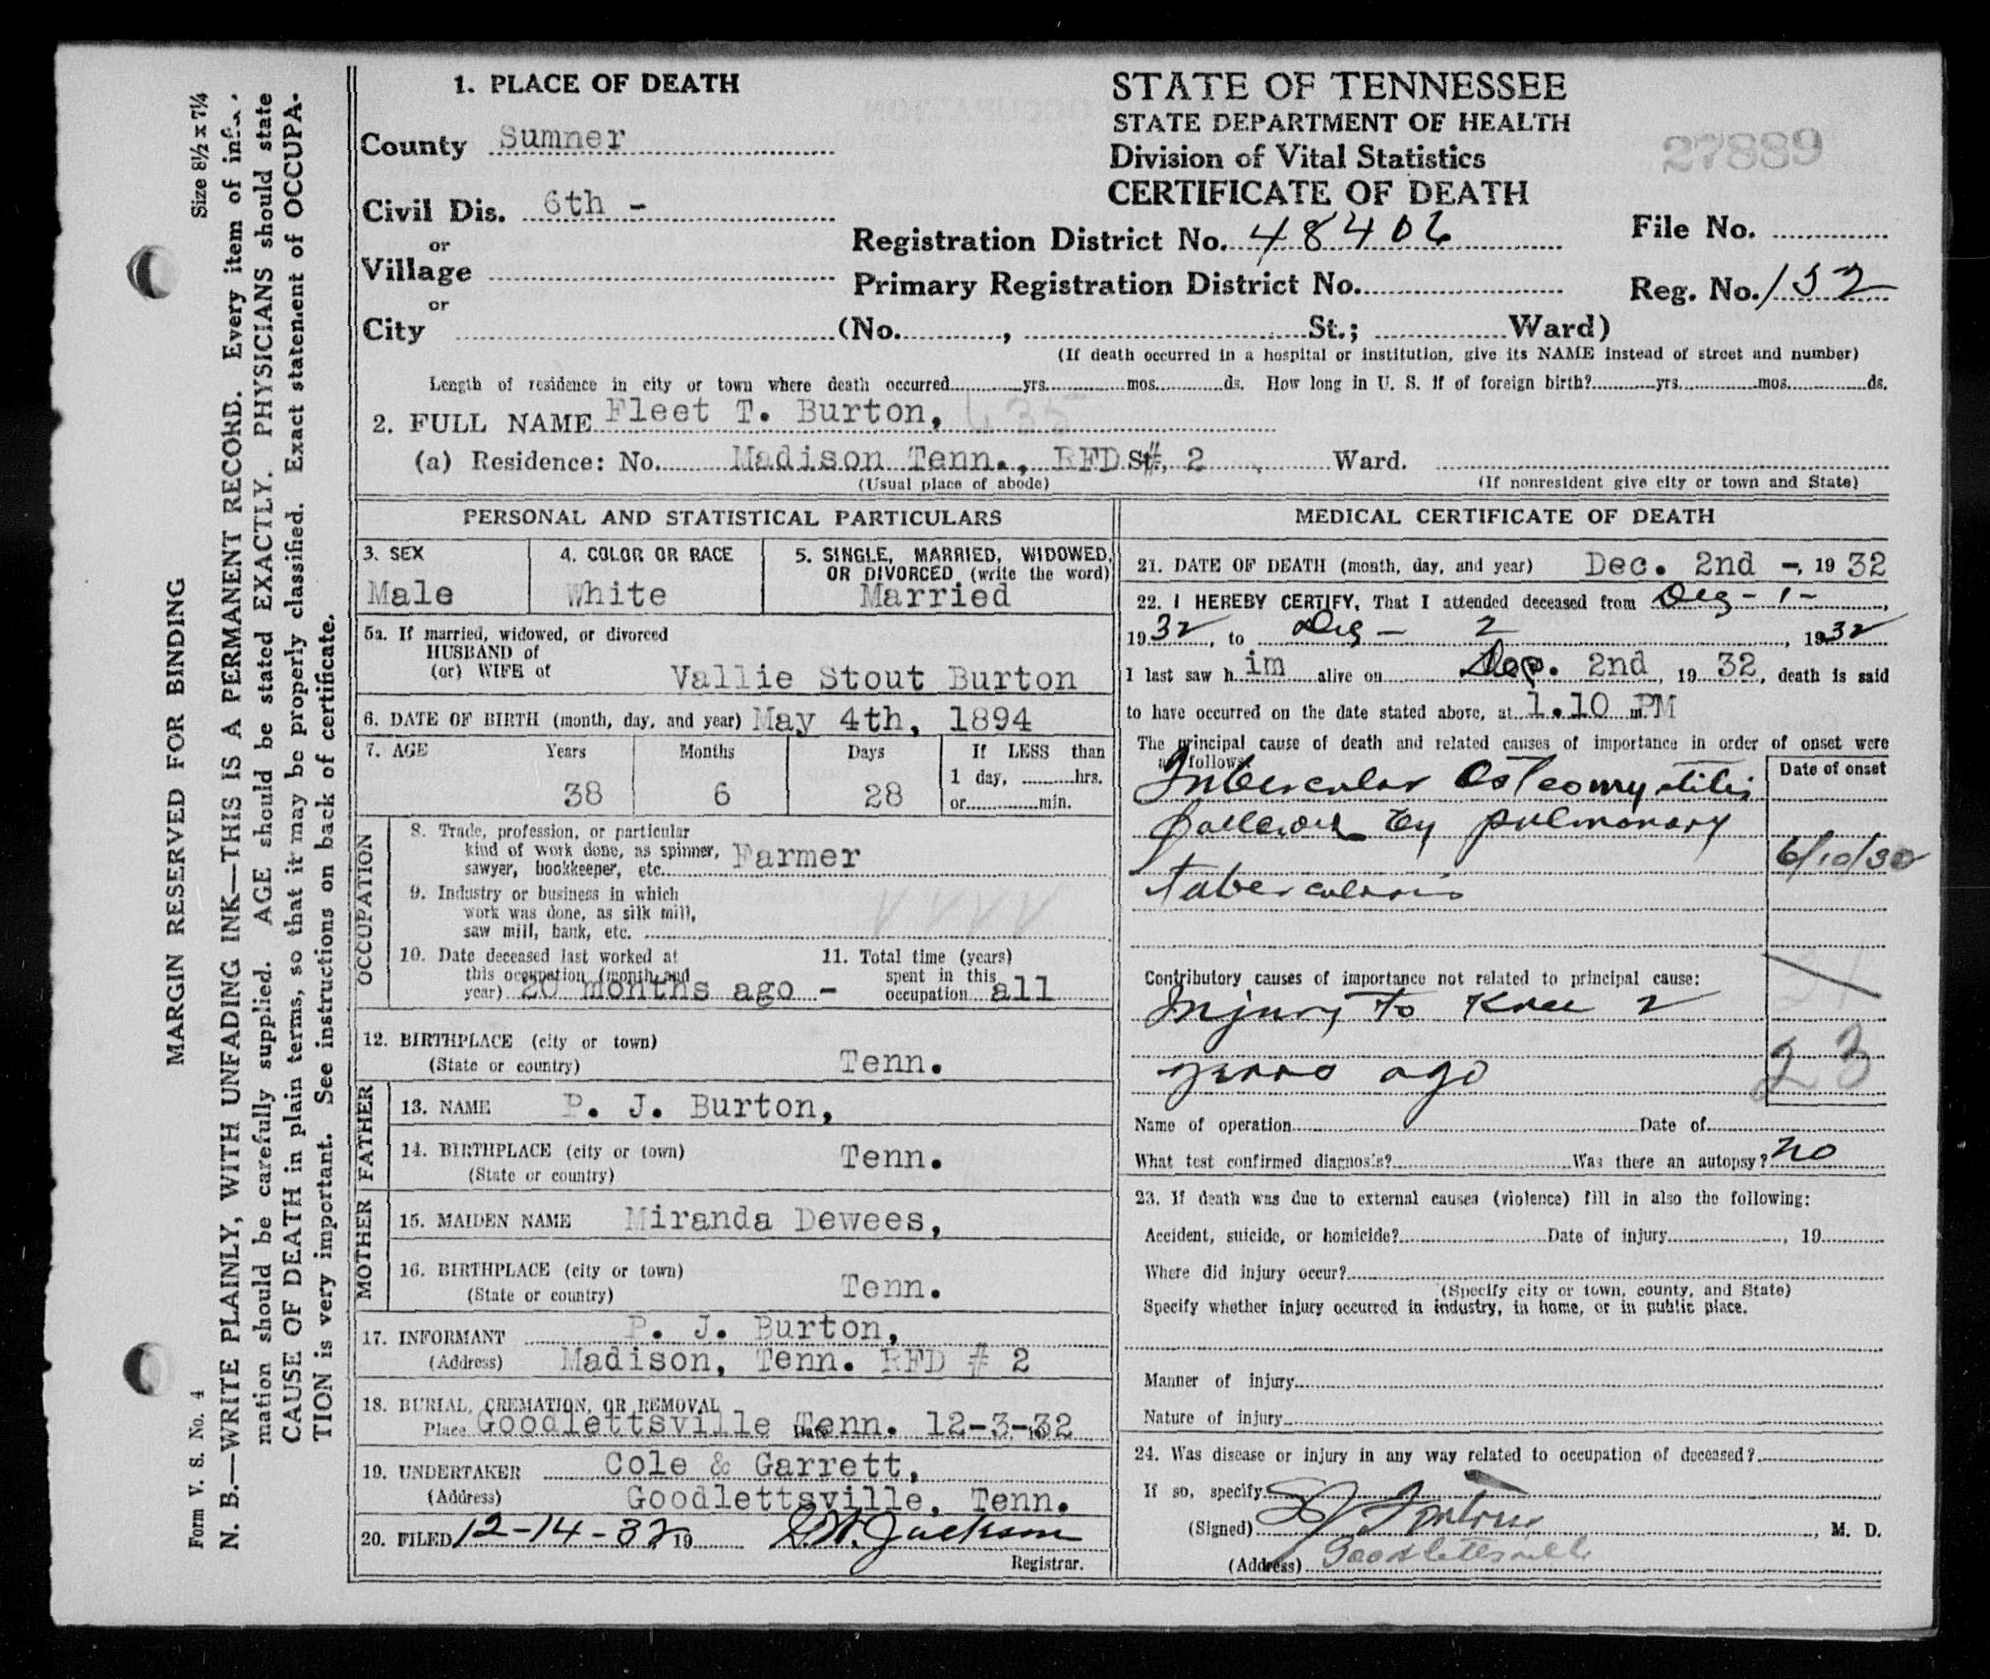 Size 8½ x 7¼
MARGIN RESERVED FOR BINDING
N. B.—WRITE PLAINLY, WITH UNFADING INK—THIS IS A PERMANENT RECORD. Every item of infor-
mation should be carefully supplied. AGE should be stated EXACTLY. PHYSICIANS should state
CAUSE OF DEATH in plain terms, so that it may be properly classified. Exact statement of OCCUPA-
TION is very important. See instructions on back of certificate.
Form V. S. No. 4
1. PLACE OF DEATH
County Sumner
Civil Dis. 6th -
or
Village
or
City (No. , St.; Ward)
STATE OF TENNESSEE
STATE DEPARTMENT OF HEALTH
Division of Vital Statistics
CERTIFICATE OF DEATH
27889
Registration District No. 48406
File No.
Primary Registration District No.
Reg. No. 152
(If death occurred in a hospital or institution, give its NAME instead of street and number)
Length of residence in city or town where death occurred yrs. mos. ds. How long in U. S. if of foreign birth? yrs. mos. ds.
2. FULL NAME Fleet T. Burton, 635
(a) Residence: No. Madison Tenn., RFD St. # 2 Ward.
(Usual place of abode)
(If nonresident give city or town and State)
PERSONAL AND STATISTICAL PARTICULARS
3. SEX
Male
4. COLOR OR RACE
White
5. SINGLE, MARRIED, WIDOWED,
OR DIVORCED (write the word)
Married
5a. If married, widowed, or divorced
HUSBAND of
(or) WIFE of Vallie Stout Burton
6. DATE OF BIRTH (month, day, and year) May 4th, 1894
7. AGE Years Months Days If LESS than
1 day, hrs.
38 6 28 or min.
OCCUPATION
8. Trade, profession, or particular
kind of work done, as spinner,
sawyer, bookkeeper, etc. Farmer
9. Industry or business in which
work was done, as silk mill,
saw mill, bank, etc.
10. Date deceased last worked at
this occupation (month and
year) 20 months ago -
11. Total time (years)
spent in this
occupation all
12. BIRTHPLACE (city or town)
(State or country) Tenn.
FATHER
13. NAME P. J. Burton,
14. BIRTHPLACE (city or town)
(State or country) Tenn.
MOTHER
15. MAIDEN NAME Miranda Dewees,
16. BIRTHPLACE (city or town)
(State or country) Tenn.
17. INFORMANT P. J. Burton,
(Address) Madison, Tenn. RFD # 2
18. BURIAL, CREMATION, OR REMOVAL
Place Goodlettsville Tenn. Date 12-3-32
19. UNDERTAKER Cole & Garrett,
(Address) Goodlettsville, Tenn.
20. FILED 12-14-32 19 Jackson
Registrar.
MEDICAL CERTIFICATE OF DEATH
21. DATE OF DEATH (month, day, and year) Dec. 2nd -, 1932
22. I HEREBY CERTIFY, That I attended deceased from Dec - 1 - ,
1932, to Dec - 2, 1932
I last saw h im alive on Dec. 2nd, 1932, death is said
to have occurred on the date stated above, at 1.10 m. PM
The principal cause of death and related causes of importance in order of onset were
as follows:
Date of onset
Tubercular Osteomyelitis
followed by pulmonary
6/10/30
tuberculosis
Contributory causes of importance not related to principal cause:
Injury to Knee 2
years ago
23
Name of operation Date of
What test confirmed diagnosis? Was there an autopsy? no
23. If death was due to external causes (violence) fill in also the following:
Accident, suicide, or homicide? Date of injury , 19
Where did injury occur?
(Specify city or town, county, and State)
Specify whether injury occurred in industry, in home, or in public place.
Manner of injury
Nature of injury
24. Was disease or injury in any way related to occupation of deceased?
If so, specify
(Signed) , M. D.
(Address) Goodlettsville